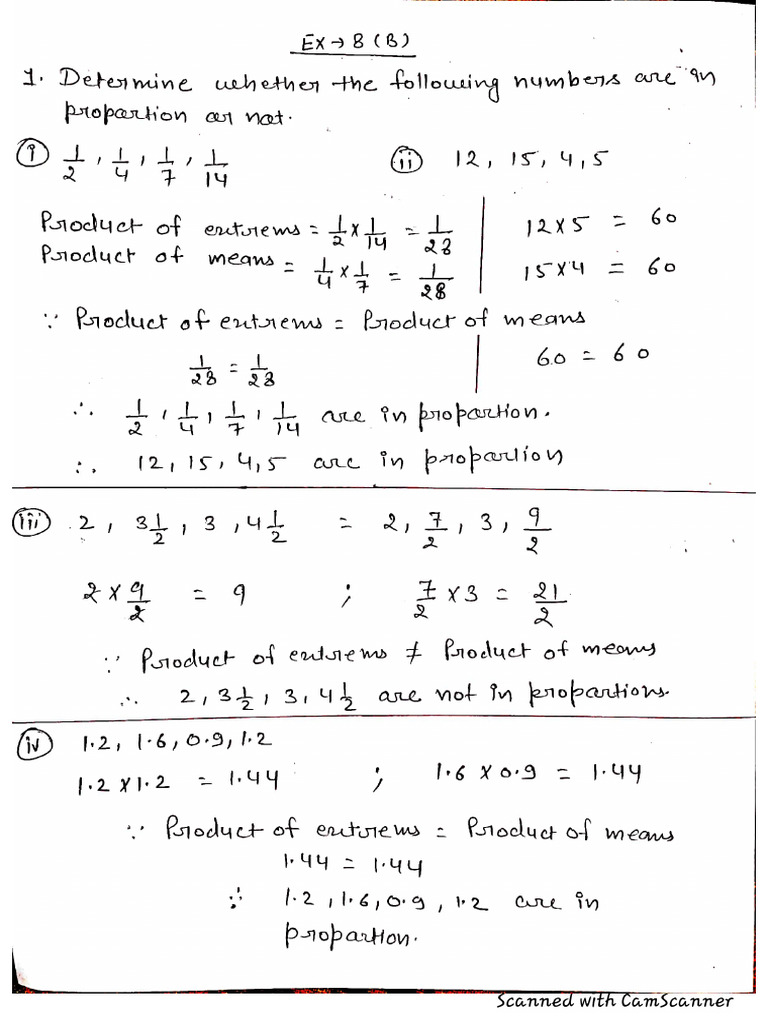 EX → 8 (B)
1. Determine whether the following numbers are in
proportion or not.
(i) 1/2, 1/4, 1/7, 1/14 (ii) 12, 15, 4, 5
Product of extrems = 1/2 × 1/14 = 1/28 | 12×5 = 60
Product of means = 1/4 × 1/7 = 1/28 | 15×4 = 60
∵ Product of extrems = Product of means
1/28 = 1/28 | 60 = 60
∴ 1/2, 1/4, 1/7, 1/14 are in proportion.
∴ 12, 15, 4, 5 are in proportion
(iii) 2, 3 1/2, 3, 4 1/2 = 2, 7/2, 3, 9/2
2 × 9/2 = 9 ; 7/2 × 3 = 21/2
∵ Product of extrems ≠ Product of means
∴ 2, 3 1/2, 3, 4 1/2 are not in proportions.
(iv) 1.2, 1.6, 0.9, 1.2
1.2 × 1.2 = 1.44 ; 1.6 × 0.9 = 1.44
∵ Product of extrems = Product of means
1.44 = 1.44
∵ 1.2, 1.6, 0.9, 1.2 are in
proportion.
Scanned with CamScanner